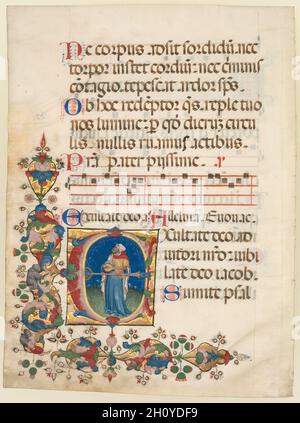 Nec corpus adsit sordidum: nec
torpor instet cordium: nec criminis
contagio: tepescat ardor sps.
Ob hoc redemptor qs. reple tuo
nos lumine: p qd dierum circu
lis: nullis ruamus actibus.
Pra pater piissime.
Exultate deo a. Alleluia. Euouae.
Exultate deo ad
iutori nro: iubi
late deo iacob.
Sumite psal
alamy
Image ID: 2H0YDF9
www.alamy.com